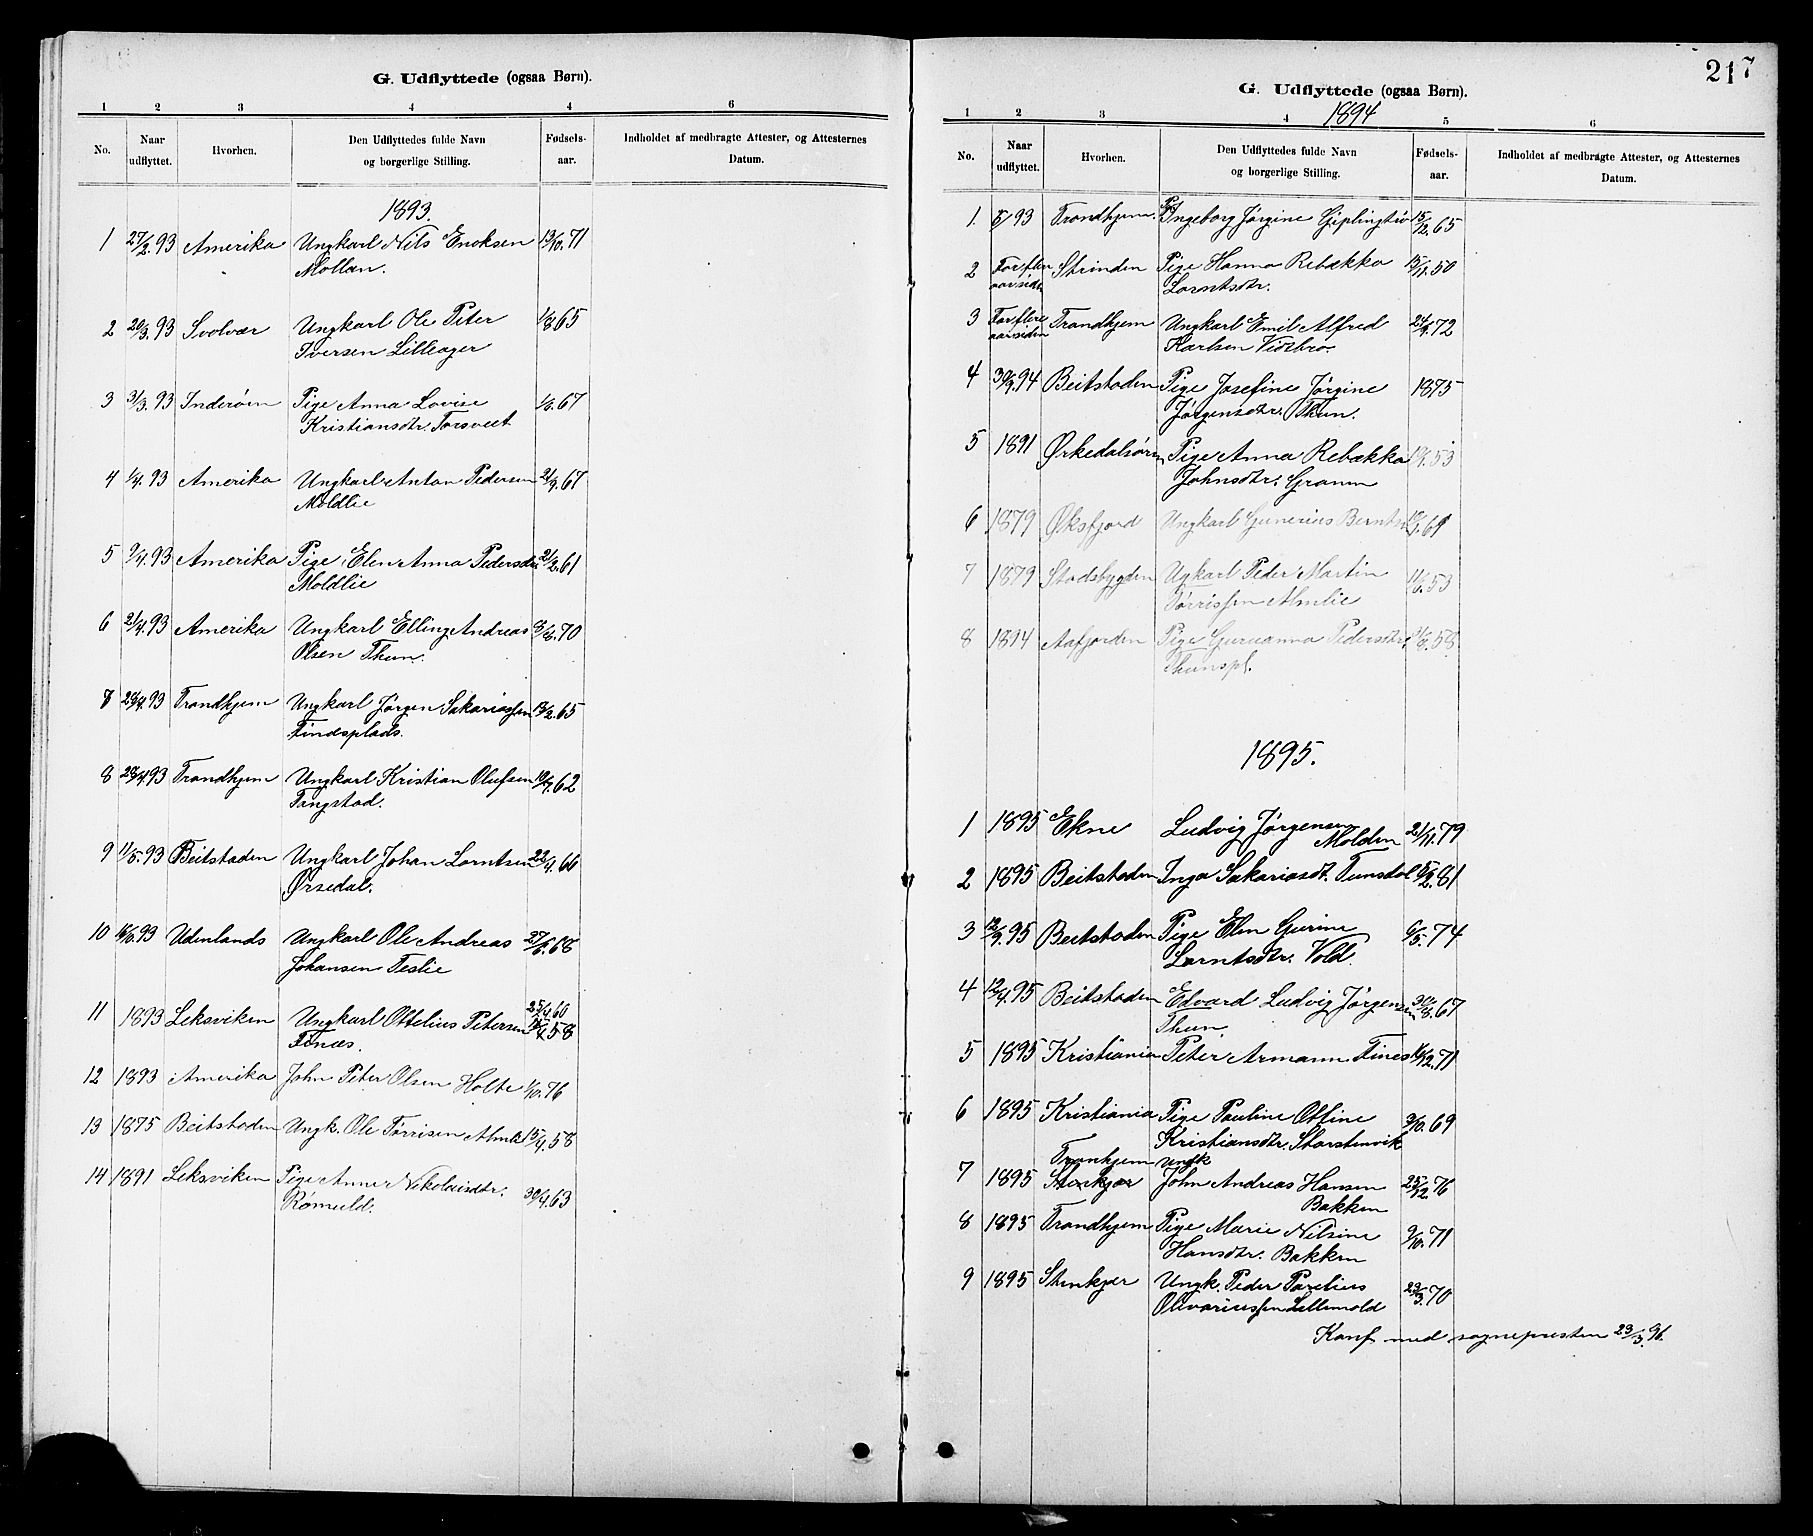 G. Udflyttede (ogsaa Børn).
1 2 3 4 4 6
No. Naar udflyttet. Hvorhen. Den Udflyttedes fulde Navn og borgerlige Stilling. Fødselsaar. Indholdet af medbragte Attester, og Attesternes Datum.
1893.
1 27/2.93 Amerika Ungkarl Nils Enoksen 13/10.71
Mollan.
2 20/3.93 Svolvær Ungkarl Ole Peter 1/8 65
Iversen Lilleager
3 31/3.93 Inderøen Pige Anna Lovise 1/6.67
Kristiansdtr. Torsveet
4 1/4.93 Amerika Ungkarl Anton Pedersen 21/9.67
Moldlie
5 9/4.93 Amerika Pige Elen Anna Pedersdtr 21/2.61
Moldlie
6 21/4.93 Amerika Ungkarl Elling Andreas 70
Olsen Thun.
93 Trondhjem Ungkarl Jørgen Sakariassen 13/2.65
Findsplads.
8 28/4.93 Trondhjem Ungkarl Kristian Olufsen 10/7.62
Tangstad.
9 11/5.93 Beitstaden Ungkarl Johan Lorntsen 22/4.66
Ørsedal.
10 16/6.93 Udenlands Ungkarl Ole Andreas 27/6.68
Johansen Teslie
11 1893 Leksviken Ungkarl Ottelius Petersen 25/4.60
Finæs. 58
12 1893 Amerika John Peter Olsen Holte 1/10.76
13 1875 Beitstaden Ungk. Ole Tørrisen Almli 15/4.58
14 1891 Leksviken Pige Anne Nikolaisdtr. 30/4.63
Rømuld.
217
G. Udflyttede (ogsaa Børn).
1894
1 2 3 4 5 6
No. Naar udflyttet. Hvorhen. Den Udflyttedes fulde Navn og borgerlige Stilling. Fødselsaar. Indholdet af medbragte Attester, og Attesternes Datum.
1. 93 Trondhjem. Ingeborg Jørgine 15/12.65
2 For flere aar siden Strinden Pige Hanna Rebækka 15/11.50
Lorntsdtr.
3 For flere aar siden Trondhjem Ungkarl Emil Alfred 24/9.72
Karlsen Vidsbro.
4 94 Beitstaden Pige Josefine Jørgine 1875
Jørgensdtr. Thun.
5 1891 Ørkedalsøren Pige Anna Rebækka 53
Johnsdtr. Gramm
6 1879 Øksfjord Ungkarl Gunerius Berntsen 69
7 1879 Stadsbygden Ugkarl Peder Martin 11/6.53
Tørrissen Almlie
8 1894 Aafjorden Pige Guruanna Pedersdtr. 58.
Thunspl.
1895.
1 1895 Ekne Ludvig Jørgensen 21/11.79
Molden
2 1895 Beitstaden Inga Sakariasdt. Tunsdal 81
3 12/9.95 Beitstaden Pige Elen Gurine 6/5.74
Lorntsdtr. Vold.
4 12/4.95 Beitstaden Edvard Ludvig Jørgensen 30/8.67
Thun.
5 1895 Kristiania Peter Armann Fines 12.71
6 1895 Kristiania Pige Pauline Otline 3/10.69
Kristiansdtr. Storstenvik
Tronhjem Ungk
7 1895 Stenkjær John Andreas Hansen 25/12.76
Bakken
8 1895 Trondhjem Pige Marie Nilsine 9/10.71
Hansdtr. Bakken
9 1895 Stenkjer Ungk. Peder Parelius 23/3.70
Olivariussen Lillemold
Konf med sognepresten 23/3.96.